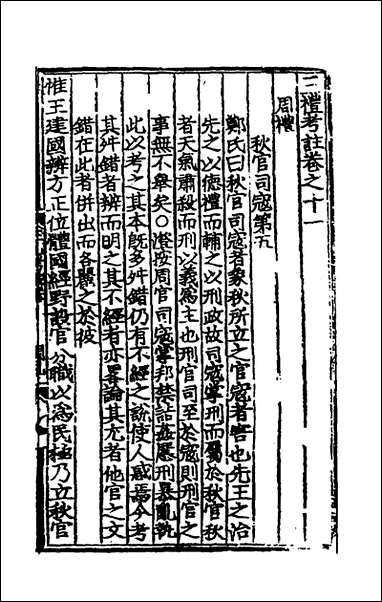 三禮考註卷之十一
周禮
秋官司寇第五
鄭氏曰秋官司寇者象秋所立之官寇者害也先王之治
先之以德禮而輔之以刑政故司寇掌刑而屬於秋官秋
者天氣肅殺而刑以義爲主也刑官司至於寇則刑官之
事無不舉矣○澄按周官司寇掌邦禁詰姦慝刑暴亂執
此以考之其本旣多舛錯仍有不經之說使人惑焉今考
其舛錯者辨而明之其不經者亦畧論其尤者他官之文
錯在此者併出而各麗之於彼
惟王建國辨方正位體國經野設官分職以爲民極乃立秋官